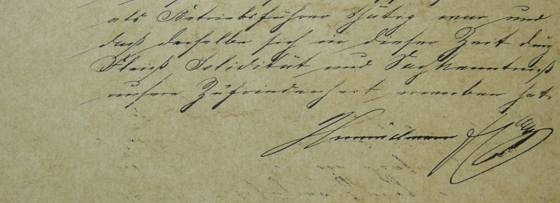 als Betriebsführer thätig war und
daß derselbe sich in dieser Zeit durch
Fleiß Solidität und Sachkenntniß
unsere Zufriedenheit erworben hat.